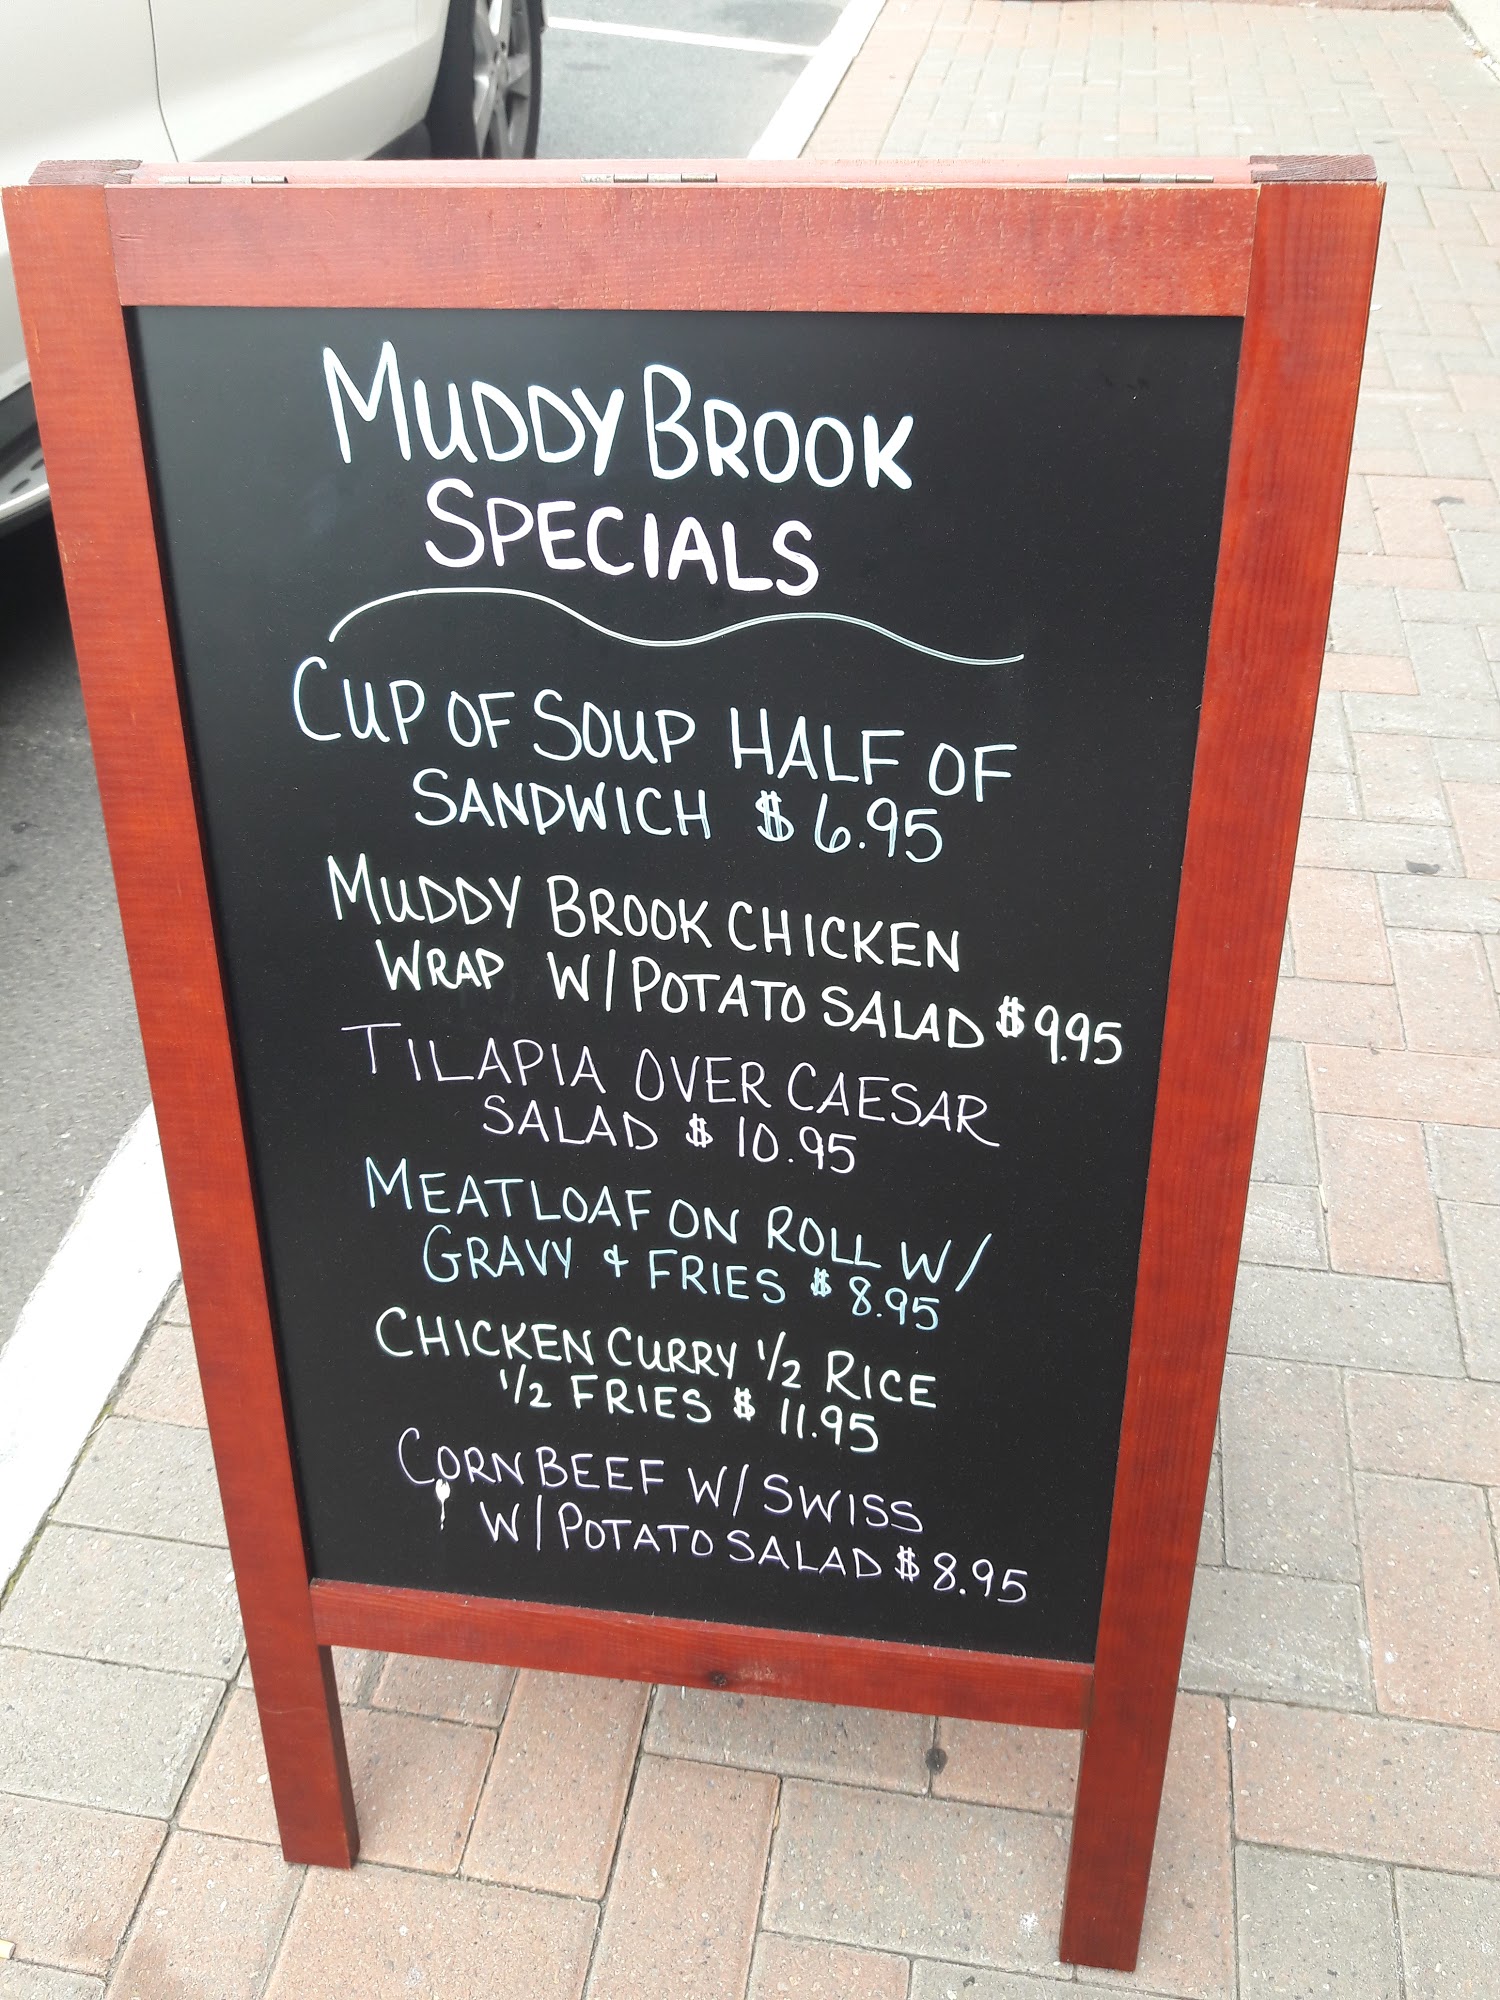 MUDDY BROOK
SPECIALS
CUP OF SOUP HALF OF
SANDWICH $6.95
MUDDY BROOK CHICKEN
WRAP W/POTATO SALAD $9.95
TILAPIA OVER CAESAR
SALAD $10.95
MEATLOAF ON ROLL W/
GRAVY & FRIES $8.95
CHICKEN CURRY 1/2 RICE
1/2 FRIES $11.95
CORN BEEF W/SWISS
W/POTATO SALAD $8.95